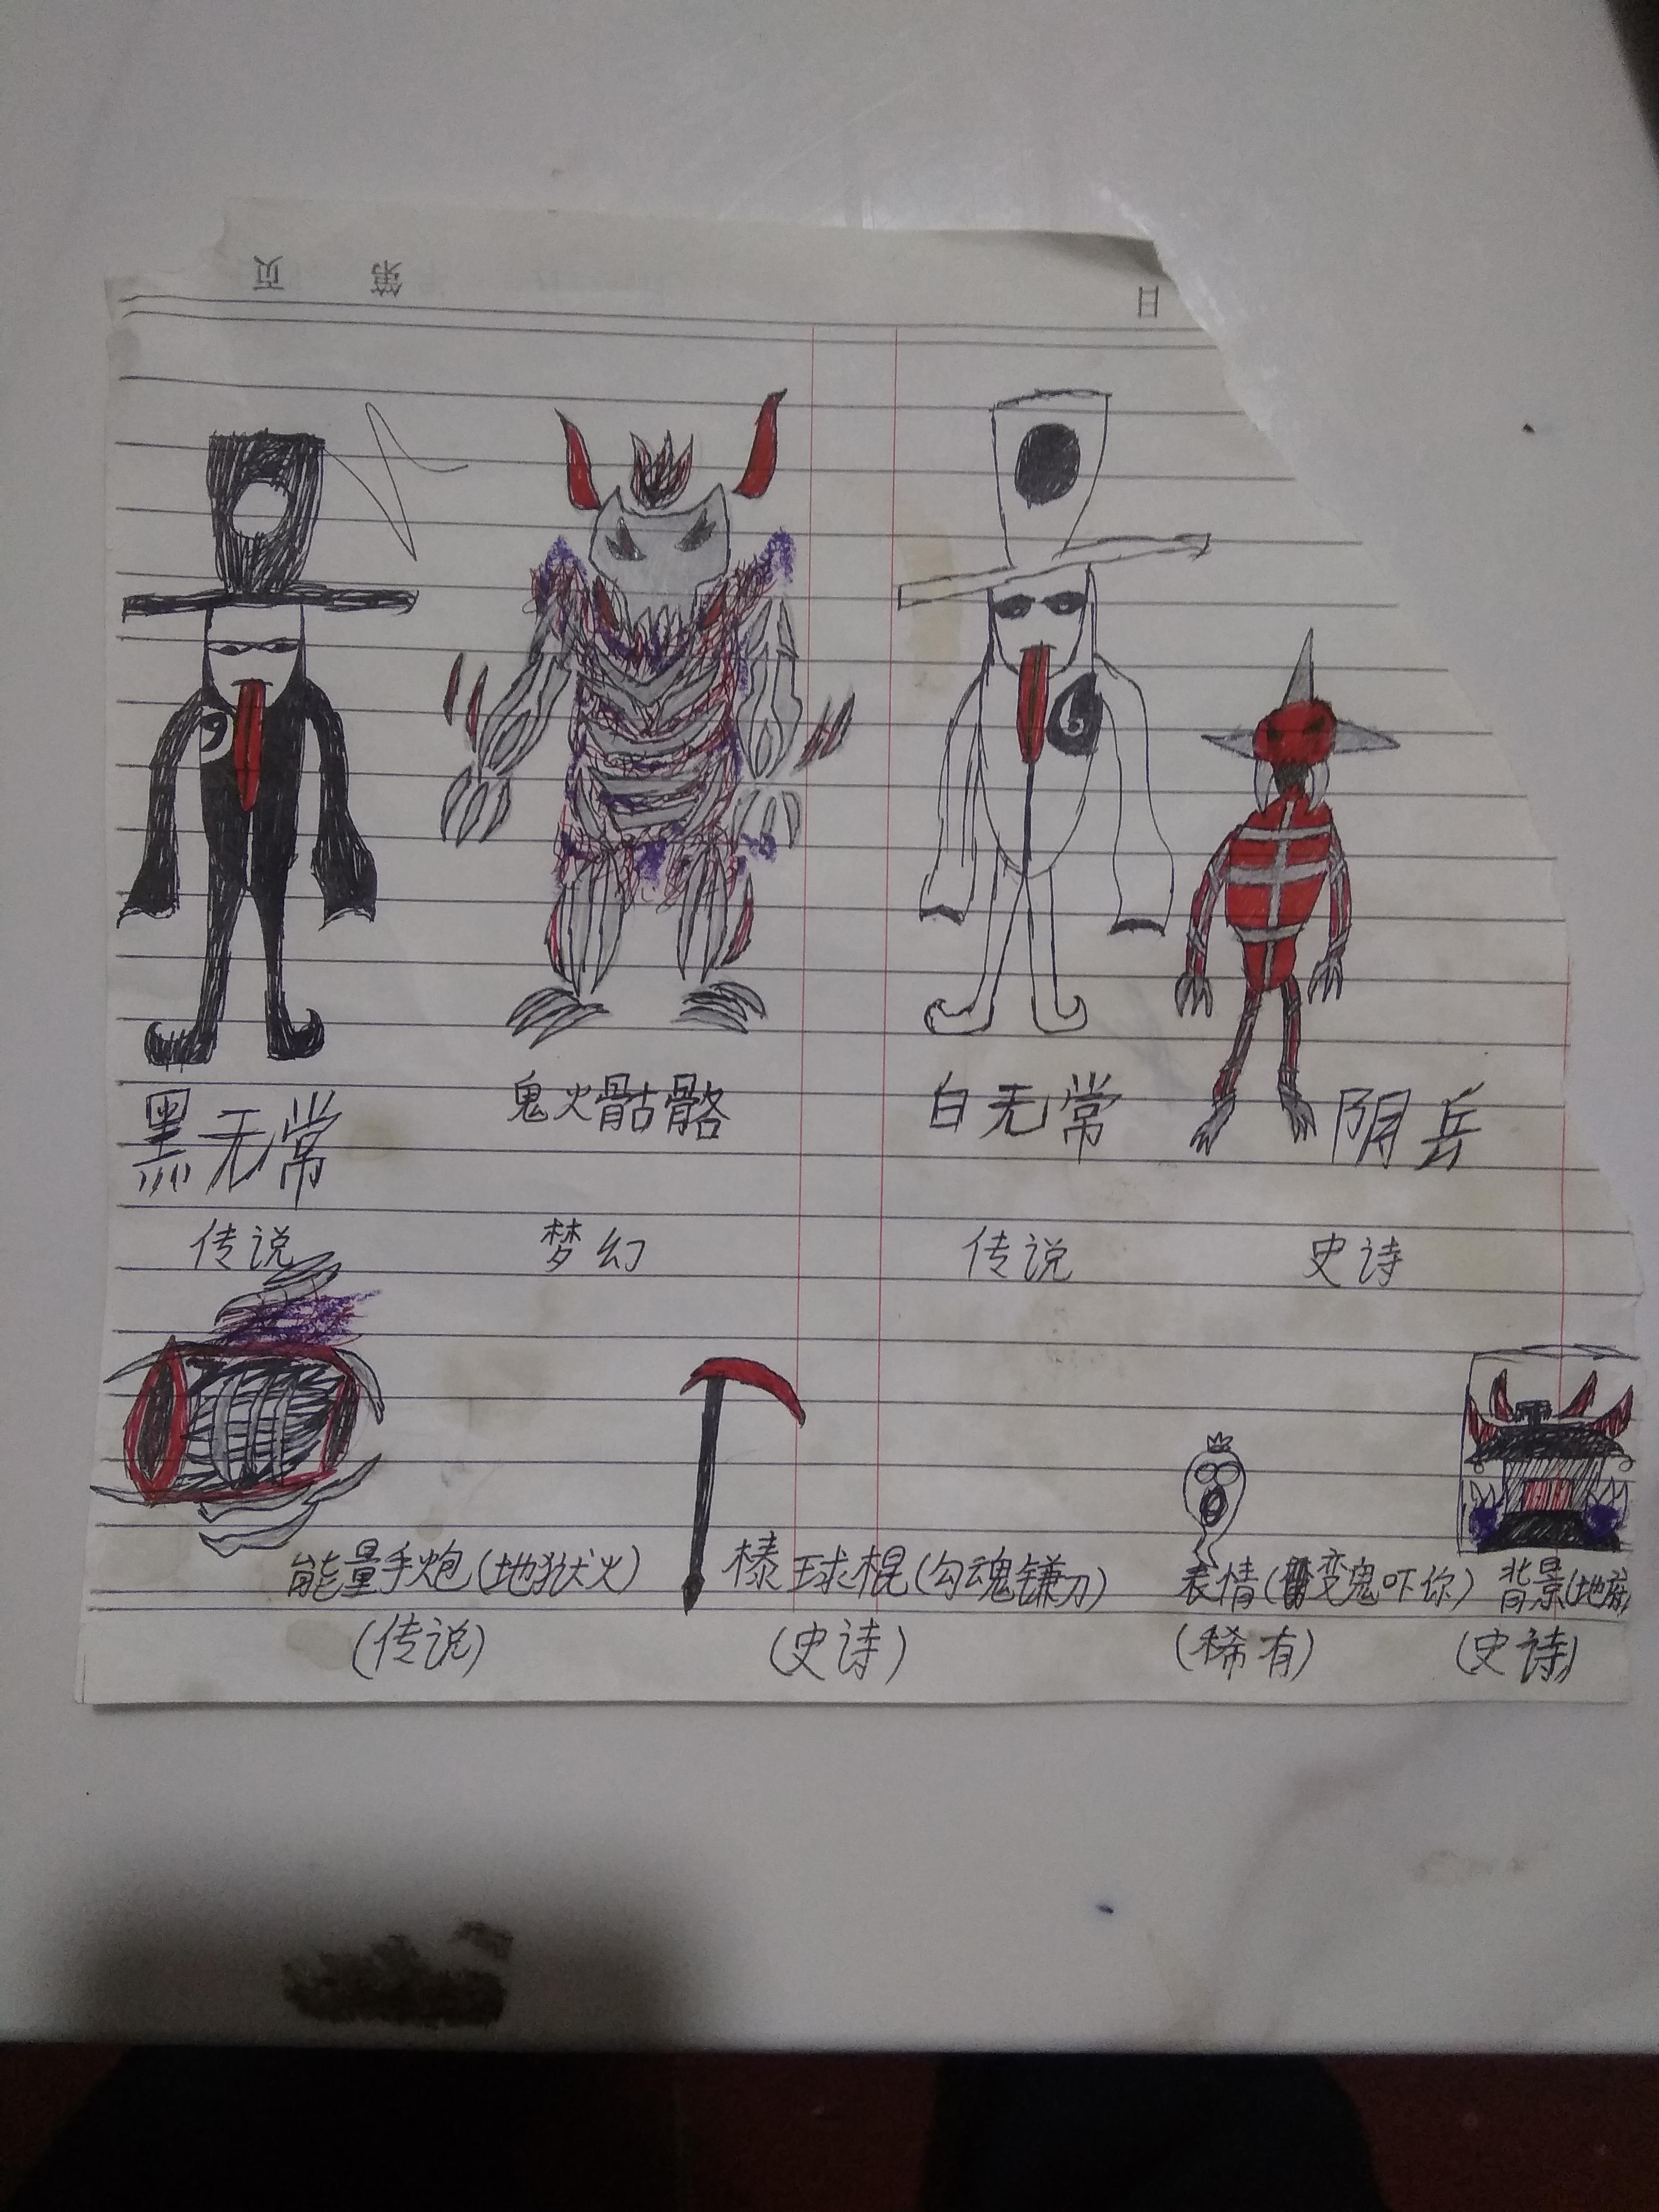 第 页
日
黑无常 鬼火骷骼 白无常 阴兵
传说 梦幻 传说 史诗
能量手炮(地狱火) 棒球棍(勾魂镰刀) 表情(变鬼吓你) 背景(地府)
(传说) (史诗) (稀有) (史诗)